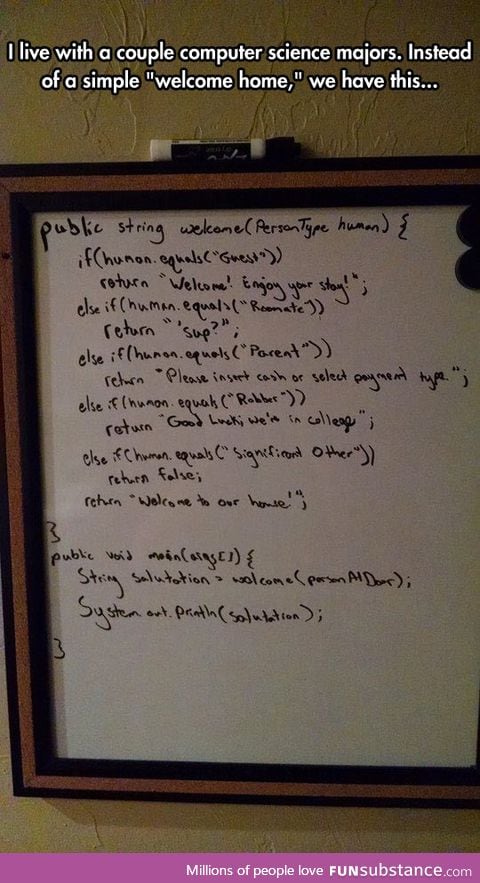 I live with a couple computer science majors. Instead
of a simple "welcome home," we have this...
public string welcome(PersonType human) {
if(human.equals("Guest"))
return "Welcome! Enjoy your stay!";
else if(human.equals("Roomate"))
return "'sup?";
else if(human.equals("Parent"))
return "Please insert cash or select payment type.";
else if(human.equals("Robber"))
return "Good Luck; we're in college";
else if(human.equals("Significant Other"))
return false;
return "Welcome to our house!";
}
public void main(args[]){
String salutation = welcome(personAtDoor);
System.out.println(salutation);
}
Millions of people love FUNsubstance.com